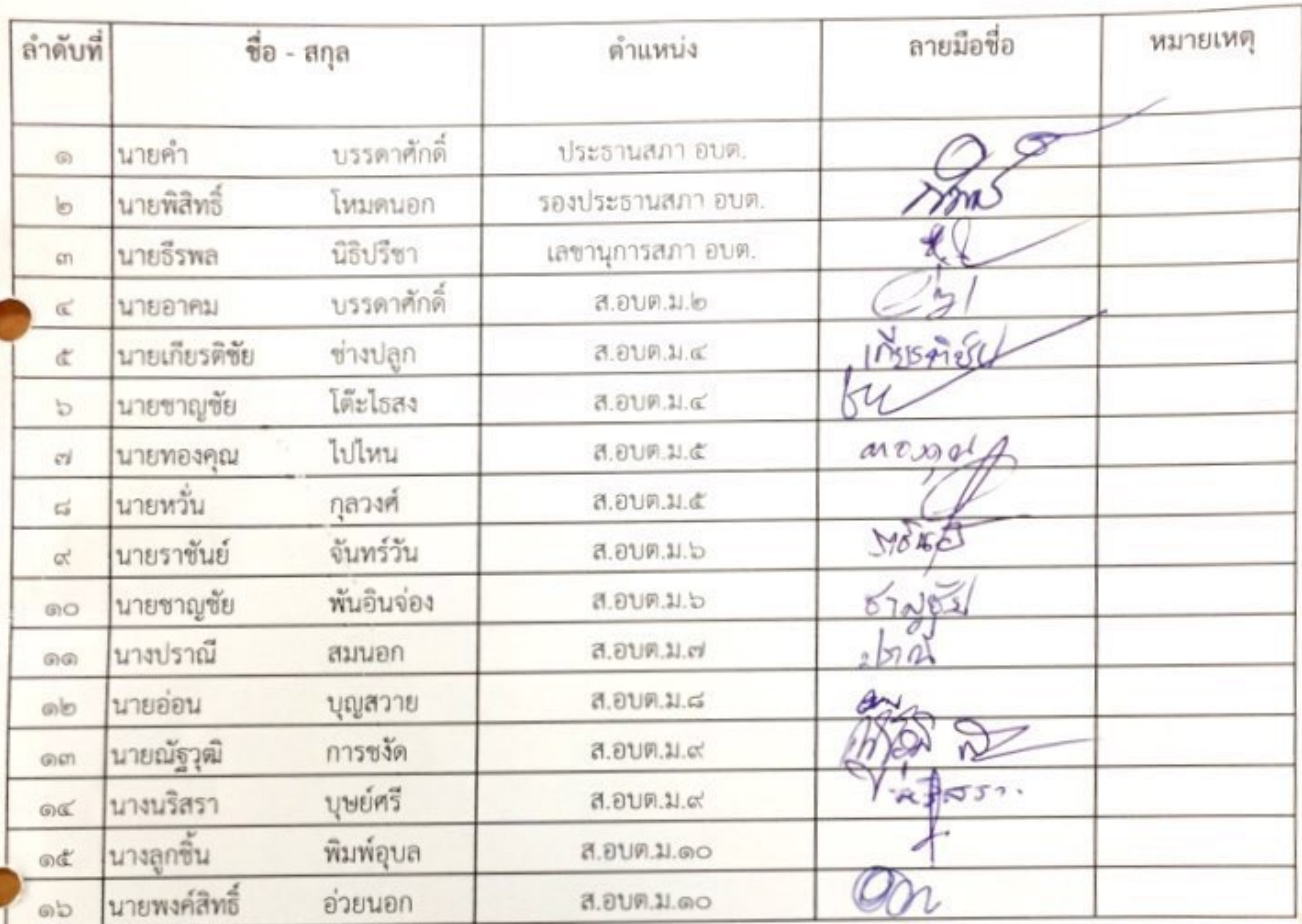 ลำดับที่ ชื่อ - สกุล ตำแหน่ง ลายมือชื่อ หมายเหตุ
๑ นายคำ บรรดาศักดิ์ ประธานสภา อบต.
๒ นายพิสิทธิ์ โหมดนอก รองประธานสภา อบต.
๓ นายธีรพล นิธิปรีชา เลขานุการสภา อบต.
๔ นายอาคม บรรดาศักดิ์ ส.อบต.ม.๒
๕ นายเกียรติชัย ช่างปลูก ส.อบต.ม.๔ เกียรติชัย
๖ นายชาญชัย โต๊ะไธสง ส.อบต.ม.๔
๗ นายทองคุณ ไปไหน ส.อบต.ม.๕ ทองคุณ
๘ นายหวั่น กุลวงศ์ ส.อบต.ม.๕
๙ นายราชันย์ จันทร์วัน ส.อบต.ม.๖ ราชันย์
๑๐ นายชาญชัย พันอินจ่อง ส.อบต.ม.๖ ชาญชัย
๑๑ นางปราณี สมนอก ส.อบต.ม.๗ ปราณี
๑๒ นายอ่อน บุญสวาย ส.อบต.ม.๘
๑๓ นายณัฐวุฒิ การชงัด ส.อบต.ม.๙
๑๔ นางนริสรา บุษย์ศรี ส.อบต.ม.๙ นริสรา
๑๕ นางลูกชิ้น พิมพ์อุบล ส.อบต.ม.๑๐
๑๖ นายพงค์สิทธิ์ อ่วยนอก ส.อบต.ม.๑๐